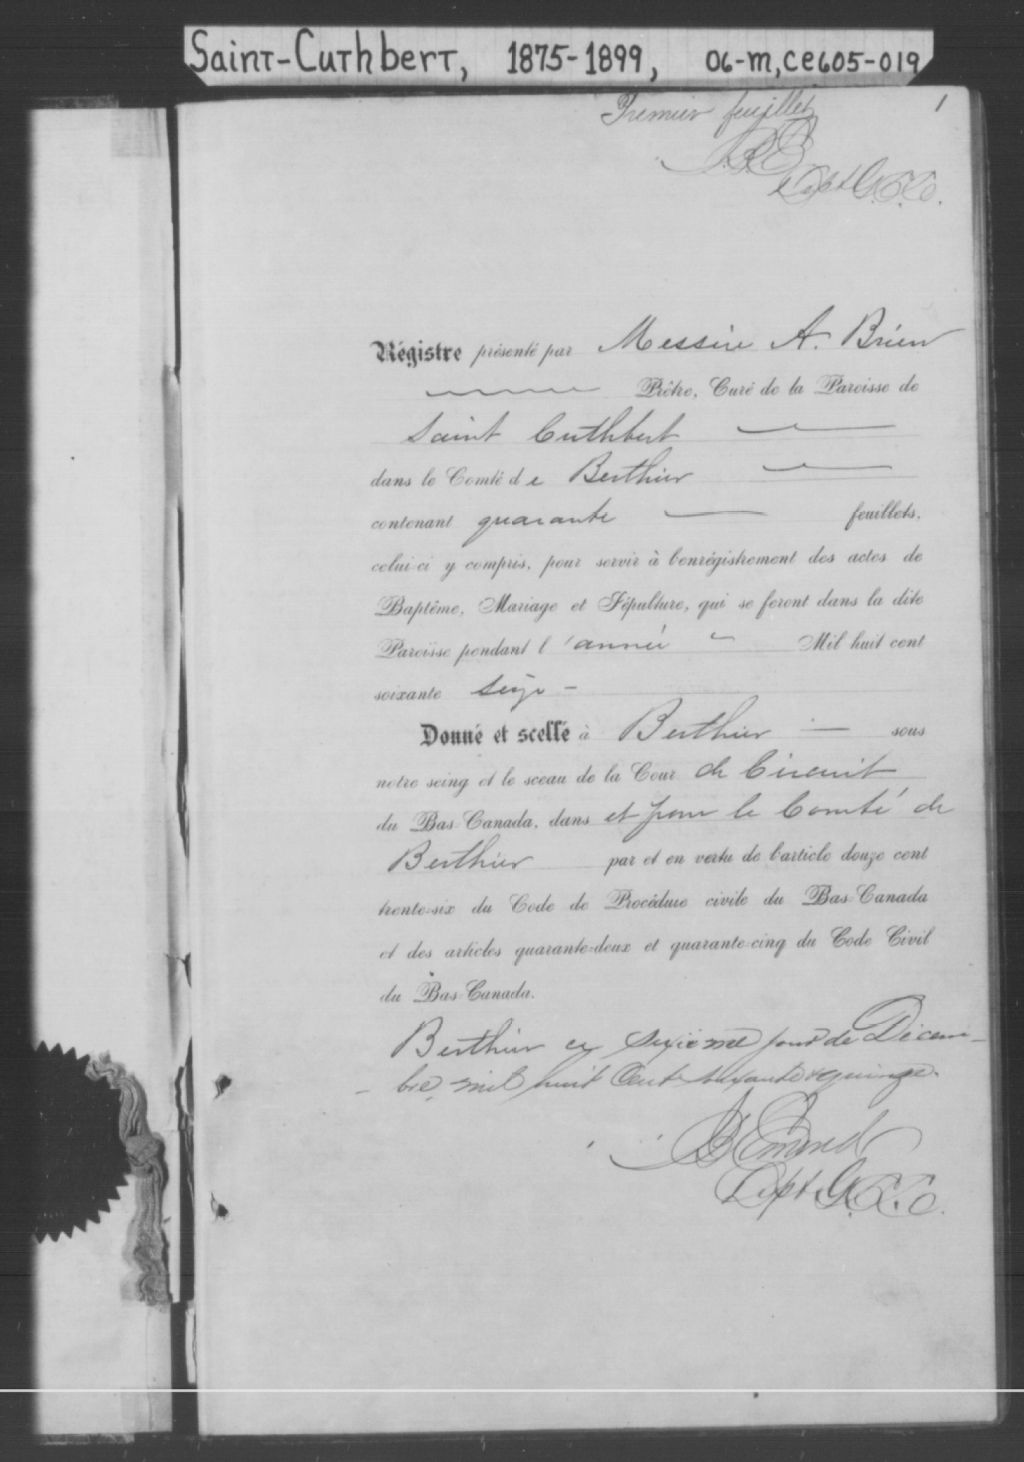 Saint-Cuthbert, 1875-1899, 06-M, CE605-019
1
Premier feuillet
Dépt G.C.C.
Régistre présenté par Messire A. Brien
Prêtre, Curé de la Paroisse de
Saint Cuthbert
dans le Comté de Berthier
contenant quarante feuillets,
celui-ci y compris, pour servir à l'enrégistrement des actes de
Baptême, Mariage et Sépulture, qui se feront dans la dite
Paroisse pendant l'année Mil huit cent
soixante seize -
Donné et scellé à Berthier sous
notre seing et le sceau de la Cour de Circuit
du Bas-Canada, dans et pour le Comté de
Berthier par et en vertu de l'article douze cent
trente-six du Code de Procédure civile du Bas-Canada
et des articles quarante-deux et quarante-cinq du Code Civil
du Bas-Canada.
Berthier ce sixième jour de Décem-
bre mil huit Cent soixante & quinze.
Dépt G.C.C.